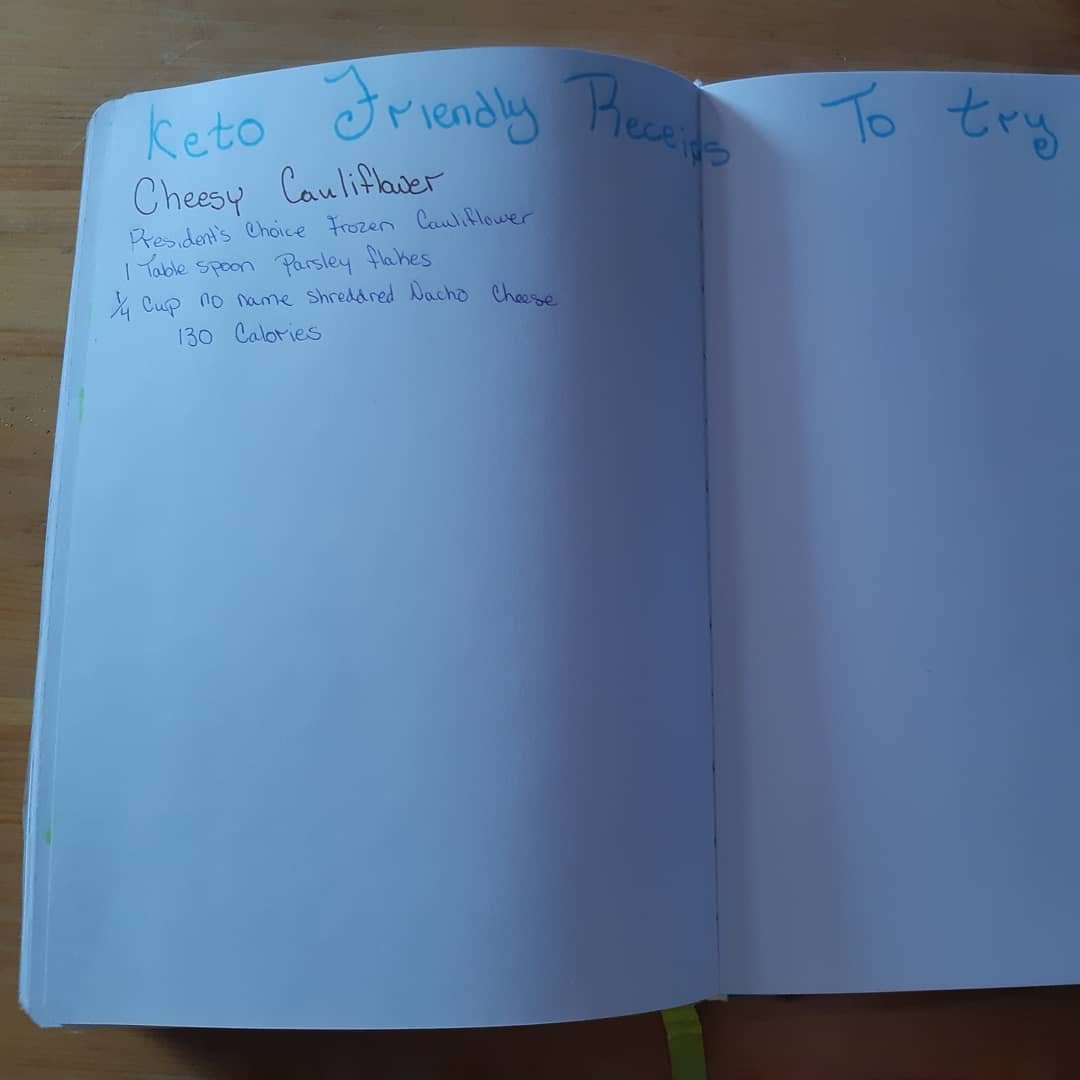 Keto Friendly Receips To try
Cheesy Cauliflower
President's Choice Frozen Cauliflower
1 Table spoon Parsley flakes
1/4 Cup no name shreddred Nacho Cheese
130 Calories